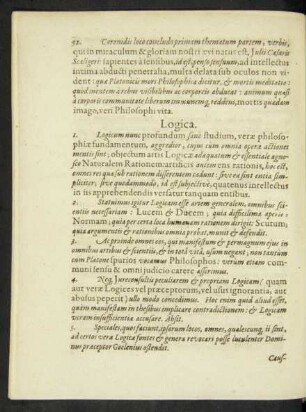 52. Coronidis loco concludo primam thematum partem, verbis,
qui in miraculum & gloriam nostri ævi natur est, Julii Cæsaris
Scaligeri: sapientes à sensibus, id est penso sensuum, ad intellectus
intima abducti penetralia, multa delata sub oculos non vident:
quæ Platonicis meri Philosophia dicitur, & mortis meditatio:
quod mentem à rebus visibilibus ac corporeis abducat: animum quasi
à corporis communitate liberum immunemq; reddat, mortis quædam
imago, veri Philosophi vita.
Logica.
1. Logicam nunc profundum sani studium, veræ philosophiæ
fundamentum, aggredior, cujus cum omnia opera actiones
mentis sint; objectum artis Logicæ adæquatum & essentiale agnosco
Naturalem Rationem: artificis autem ens rationis, hoc est,
omnes res quæ sub rationem cadunt: sive ea sint entia simpliciter;
sive quodammodo, id est subjectivè, quatenus intellectus
in iis apprehendendis versatur tanquam entibus.
2. Statuimus igitur Logicam esse artem generalem, omnibus scientiis
necessariam: Lucem & Ducem; quia difficilima aperit:
Normam; quia per certa loca humanam rationem dirigit: Scutum;
quia argumentis & rationibus omnia probat, munit & defendit.
3. Ac proinde omnes eos, qui manifestum & permagnum ejus in
omnibus artibus & scientiis, & in totâ vitâ, usum negant, non tantùm
cum Platone spurios vocamus Philosophos: verùm etiam communi
sensu & omni judicio carere asserimus.
4. Neq; Jureconsultis peculiarem & propriam Logicam (quam
aut veræ Logices vel præceptorum, vel usus ignorantia, aut
abusus peperit) ullo modo concedimus. Hoc enim quid aliud esset,
quàm manifestam in thesibus implicare contradictionem: & Logicam
veram insufficientia accusare. Absit.
5. Speciales, quos faciunt, ipsorum locos, omnes, qualescunq; ii sint,
ad certos veræ Logicæ fontes & genera revocari posse luculenter Dominus
præceptor Goclenius ostendit.
Caus-